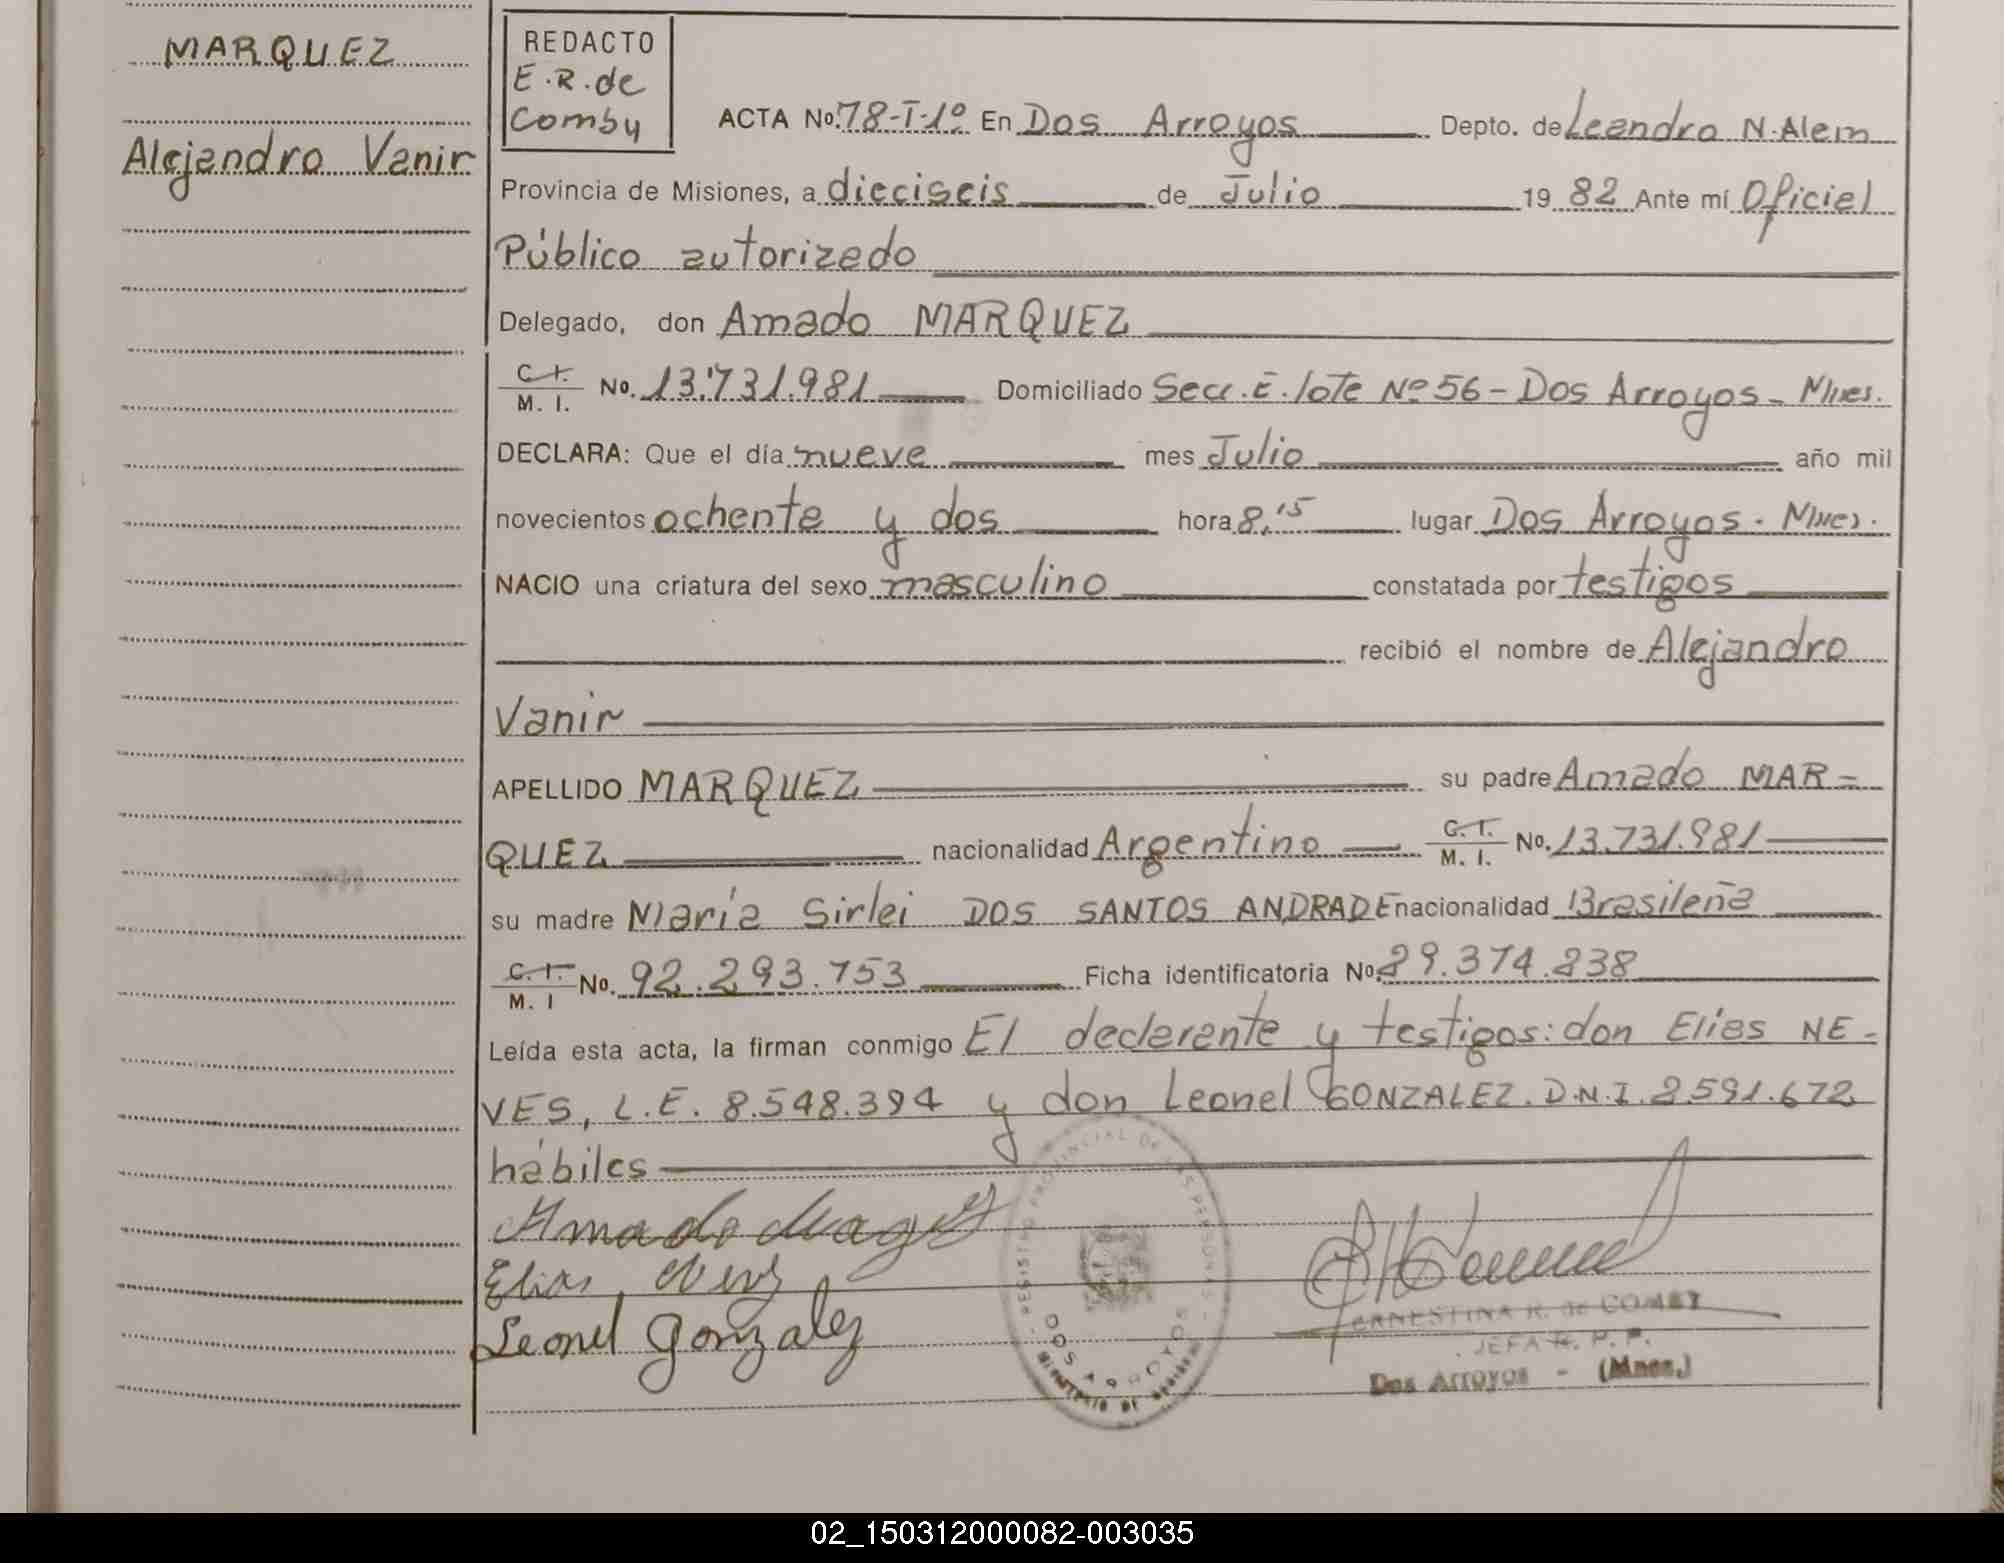 MARQUEZ
Alejandro Vanir
REDACTO
E.R.de
Comby
ACTA No. 78-T-1º En Dos Arroyos Depto. de Leandro N. Alem
Provincia de Misiones, a dieciseis de Julio 1982 Ante mí Oficial
Público autorizado
Delegado, don Amado MARQUEZ
C.I. M. I. No. 13.731.981 Domiciliado Secc. E. lote Nº 56 - Dos Arroyos - Mnes.
DECLARA: Que el día nueve mes Julio año mil
novecientos ochenta y dos hora 8,15 lugar Dos Arroyos. Mnes.
NACIO una criatura del sexo masculino constatada por testigos
recibió el nombre de Alejandro
Vanir
APELLIDO MARQUEZ su padre Amado MAR=
QUEZ nacionalidad Argentino C.I. M. I. No. 13.731.981
su madre María Sirlei DOS SANTOS ANDRADE nacionalidad Brasileña
C.I. M. I No. 92.293.753 Ficha identificatoria No. 29.374.238
Leída esta acta, la firman conmigo El declarante y testigos: don Elías NE-
VES, L.E. 8.548.394 y don Leonel GONZALEZ. D.N.I. 2.591.672
hábiles
Amado
Elias
Leonel Gonzalez
REGISTRO PROVINCIAL DE LAS PERSONAS
DOS ARROYOS
ERNESTINA R. de COMBY
JEFA R. P. P.
Dos Arroyos - (Mnes.)
02_150312000082-003035